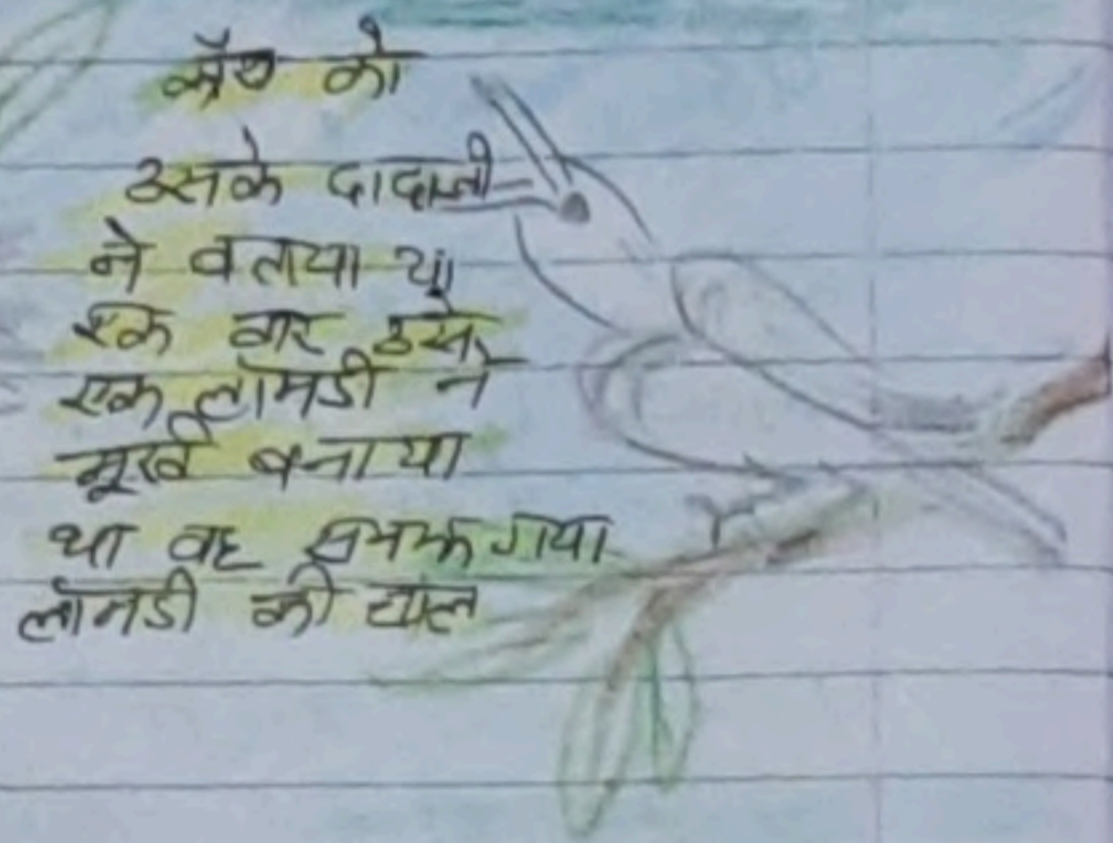 को
उसके दादाजी
ने वताया था
एक वार उसे
एक लोमडी ने
मूर्ख बनाया
था वह समझ गया
लोमडी की चाल